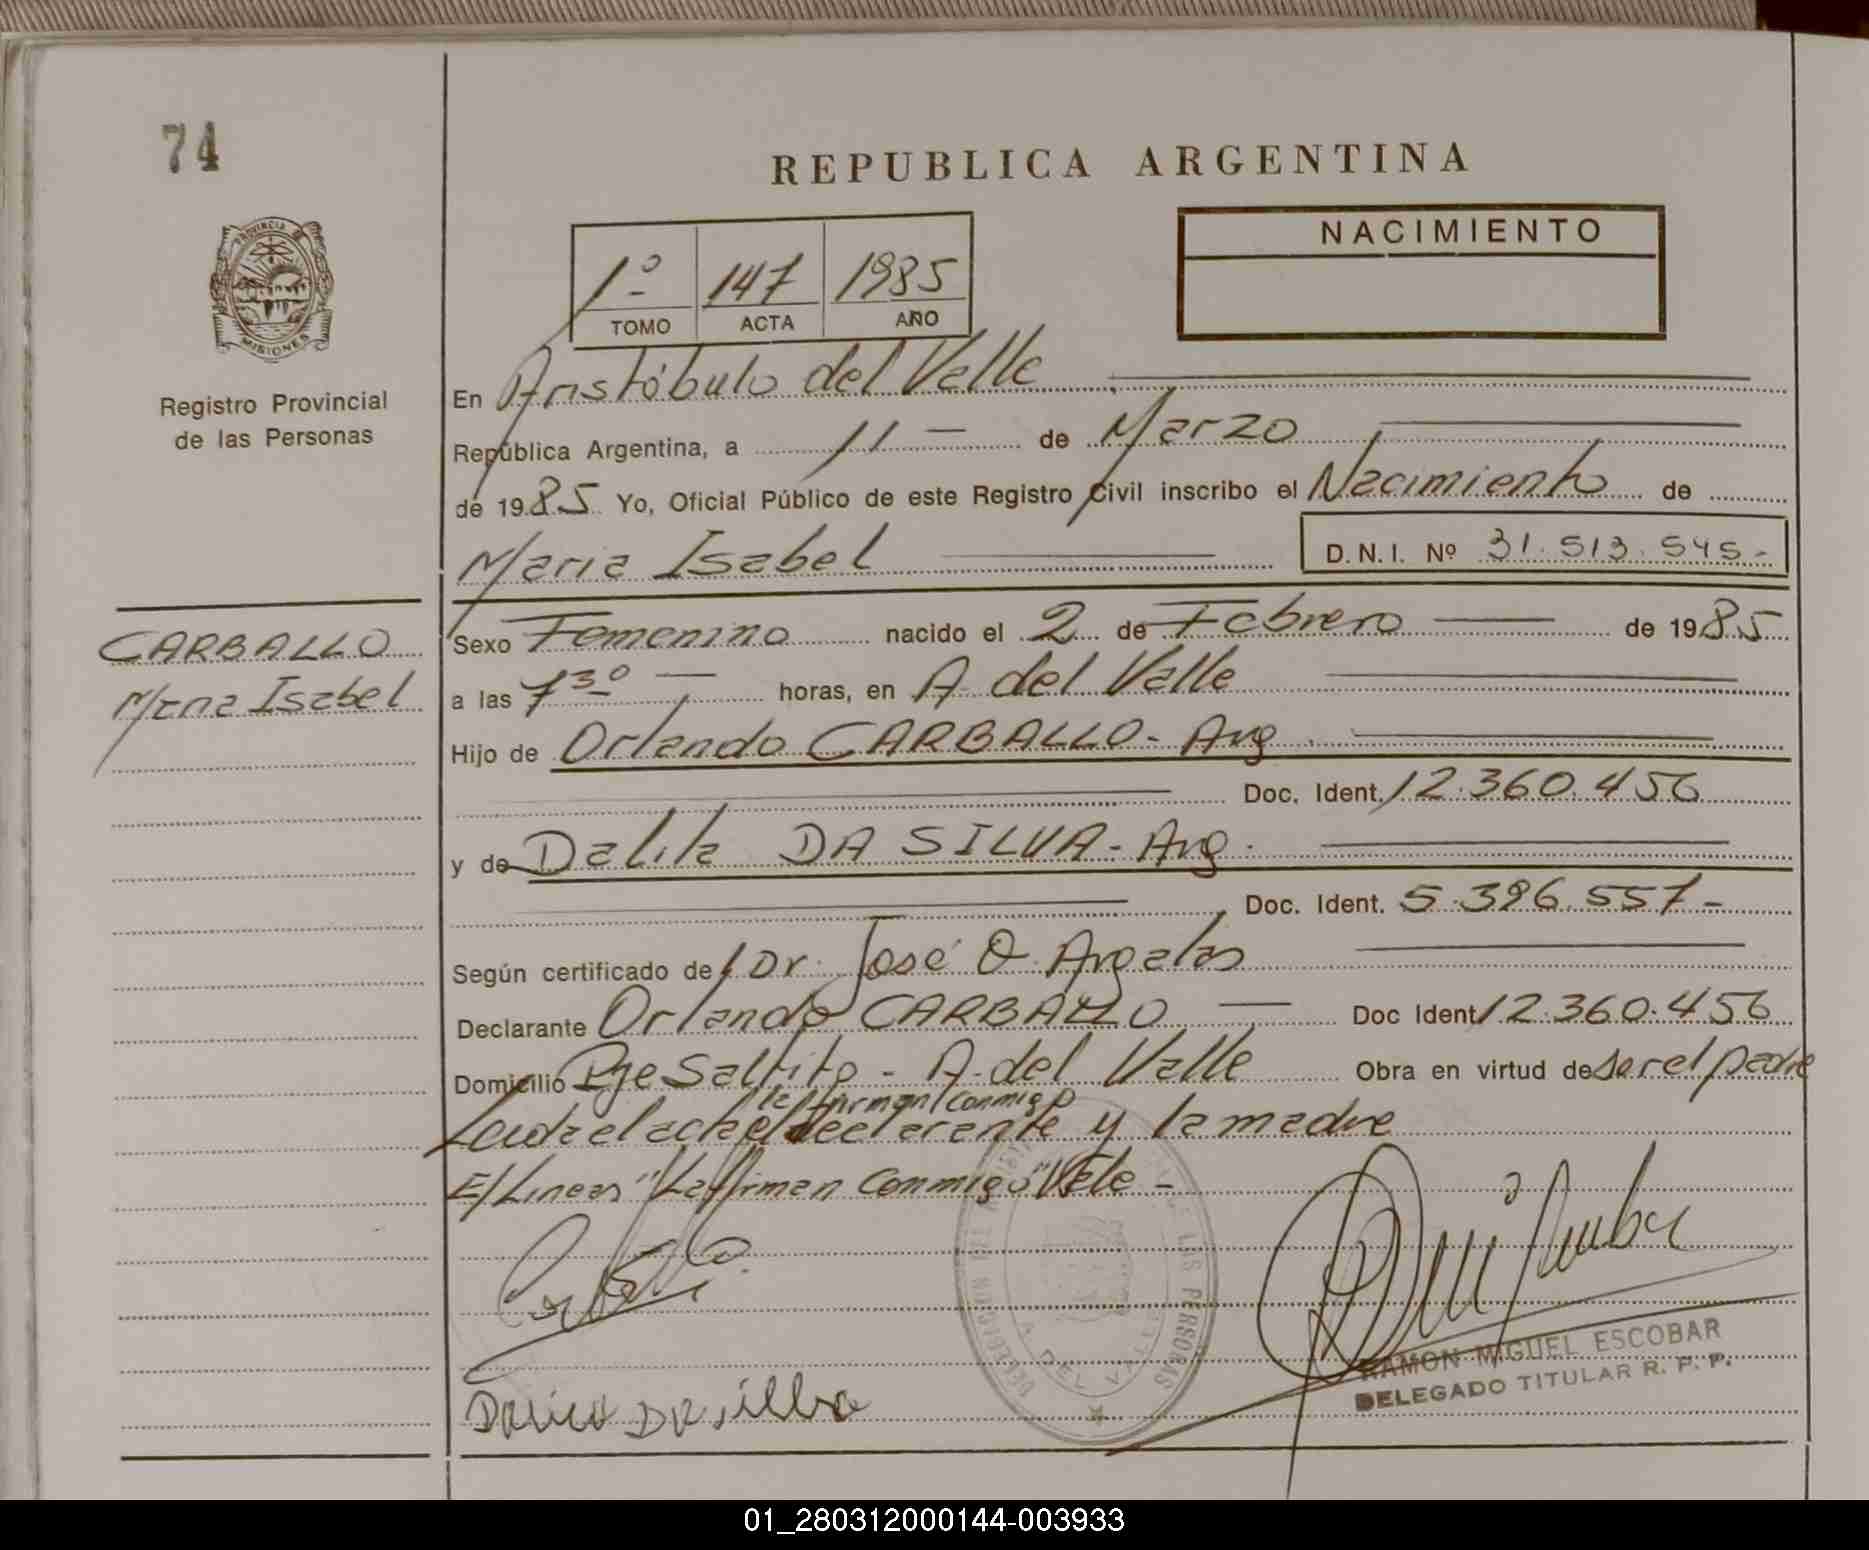 74
REPUBLICA ARGENTINA
PROVINCIA D
MISIONES
Registro Provincial
de las Personas
1º 147 1985
TOMO ACTA AÑO
NACIMIENTO
En Aristóbulo del Valle
República Argentina, a 11 — de Marzo
de 1985 Yo, Oficial Público de este Registro Civil inscribo el Nacimiento de
Maria Isabel D.N.I. Nº 31.513.545.-
CARBALLO
Maria Isabel
Sexo Femenino nacido el 2 de Febrero de 1985
a las 7 30 horas, en A. del Valle
Hijo de Orlando CARBALLO - Arg
Doc. Ident. 12.360.456
y de Dalila DA SILVA - Arg.
Doc. Ident. 5.396.557-
Según certificado de Dr. José O. Argelas
Declarante Orlando CARBALLO Doc Ident 12.360.456
Domicilio Pje Saltito - A. del Valle Obra en virtud de ser el padre
la firman conmigo
Leida el acta el declarante y la madre
E/Lineas "La firman conmigo" Vale -
DELEGACION DEL
LAS PERSONAS
A. DEL VALLE
RAMON MIGUEL ESCOBAR
DELEGADO TITULAR R. P. P.
01_280312000144-003933